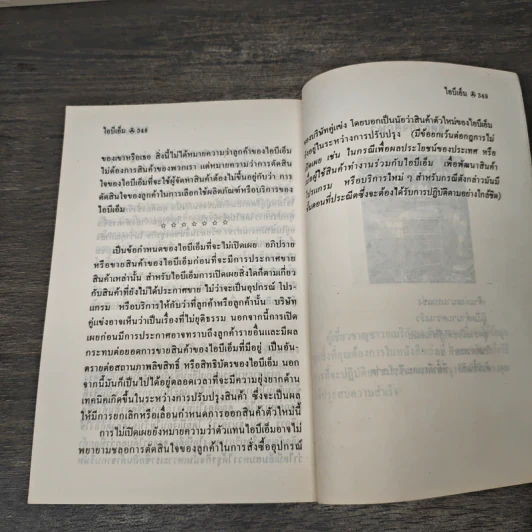 ไอบีเอ็ม ๏ 348
ของเขาหรือเธอ สิ่งนี้ไม่ได้หมายความว่าลูกค้าของไอบีเอ็ม
ไม่ต้องการสินค้าของพวกเรา แต่หมายความว่าการตัดสิน
ใจของไอบีเอ็มที่จะใช้ผู้จัดหาสินค้าต้องไม่ขึ้นอยู่กับว่า การ
ตัดสินใจของลูกค้าในการเลือกใช้ผลิตภัณฑ์หรือบริการของ
ไอบีเอ็ม
☆ ☆ ☆ ☆ ☆ ☆ ☆
เป็นข้อกำหนดของไอบีเอ็มที่จะไม่เปิดเผย อภิปราย
หรือขายสินค้าของไอบีเอ็มก่อนที่จะมีการประกาศขาย
สินค้าเหล่านั้น สำหรับไอบีเอ็มการเปิดเผยสิ่งใดก็ตามเกี่ยว
กับสินค้าที่ยังไม่ได้ประกาศขาย ไม่ว่าจะเป็นอุปกรณ์ โปร
แกรม หรือบริการให้กับว่าที่ลูกค้าหรือลูกค้านั้น บริษัท
คู่แข่งอาจเห็นว่าเป็นเรื่องที่ไม่ยุติธรรม นอกจากนี้การเปิด
เผยก่อนมีการประกาศอาจทราบถึงลูกค้ารายอื่นและมีผล
กระทบต่อยอดการขายสินค้าของไอบีเอ็มที่มีอยู่ เป็นอัน
ตรายต่อสถานภาพลิขสิทธิ์ หรือสิทธิบัตรของไอบีเอ็ม นอก
จากนี้มันก็เป็นไปได้อยู่ตลอดเวลาที่จะมีความยุ่งยากด้าน
เทคนิคเกิดขึ้นในระหว่างการปรับปรุงสินค้า ซึ่งจะเป็นผล
ให้มีการยกเลิกหรือเลื่อนกำหนดการออกสินค้าตัวใหม่นี้
การไม่เปิดเผยยังหมายความว่าตัวแทนไอบีเอ็มอาจไม่
พยายามชะลอการตัดสินใจของลูกค้าในการสั่งซื้ออุปกรณ์
ไอบีเอ็ม ๏ 349
ของบริษัทคู่แข่ง โดยบอกเป็นนัยว่าสินค้าตัวใหม่ของไอบีเอ็ม
อยู่ในระหว่างการปรับปรุง (มีข้อยกเว้นต่อกฎการไม่
เปิดเผย เช่น ในกรณีเพื่อผลประโยชน์ของประเทศ หรือ
เมื่อผู้ใช้สินค้าทำงานร่วมกับไอบีเอ็ม เพื่อพัฒนาสินค้า
โปรแกรม หรือบริการใหม่ ๆ สำหรับกรณีดังกล่าวมันมี
ขั้นตอนที่ประณีตซึ่งจะต้องได้รับการปฏิบัติตามอย่างใกล้ชิด)